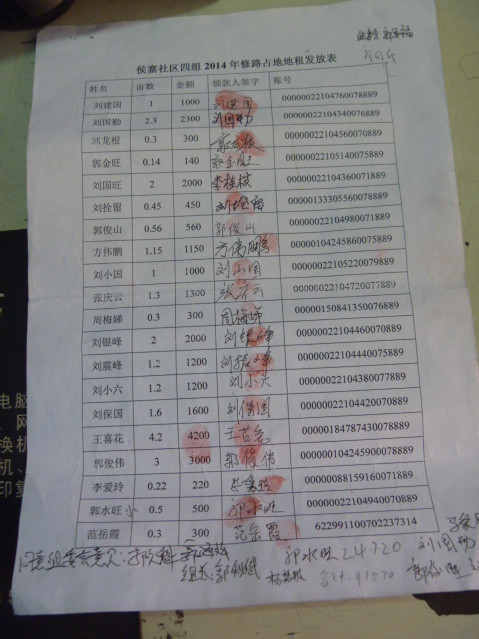 侯寨社区四组 2014 年修路占地地租发放表
姓名 亩数 金额 领款人签字 账号
刘建国 1 1000 刘建国 00000022104760078889
刘国勤 2.3 2300 刘国勤 00000022104340076889
郭龙根 0.3 300 郭龙根 00000022104560070889
郭金旺 0.14 140 郭金旺 00000022105140075889
刘国旺 2 2000 李桂枝 00000022104360071889
刘拴留 0.45 450 刘拴留 00000133305560078889
郭俊山 0.56 560 郭俊山 00000022104980071889
方伟鹏 1.15 1150 方伟鹏 00000104245860075889
刘小国 1 1000 刘小国 00000022105220079889
张庆云 1.3 1300 张庆云 00000022104720077889
周梅娣 0.3 300 周梅娣 00000150841350076889
刘银峰 2 2000 刘银峰 00000022104460070889
刘震峰 1.2 1200 刘振峰 00000022104440075889
刘小六 1.2 1200 刘小六 00000022104380077889
刘保国 1.6 1600 刘保国 00000022104420070889
王喜花 4.2 4200 王喜花 00000184787430078889
郭俊伟 3 3000 郭俊伟 00000104245900078889
李爱玲 0.22 220 00000088159160071889
郭水旺 小 0.5 500 郭水旺 00000022104940070889
范岳霞 0.3 300 范岳霞 622991100702237314
郭水旺 24720 刘国勤
组长:郭利斌
电脑
、网
换机
机、
印复